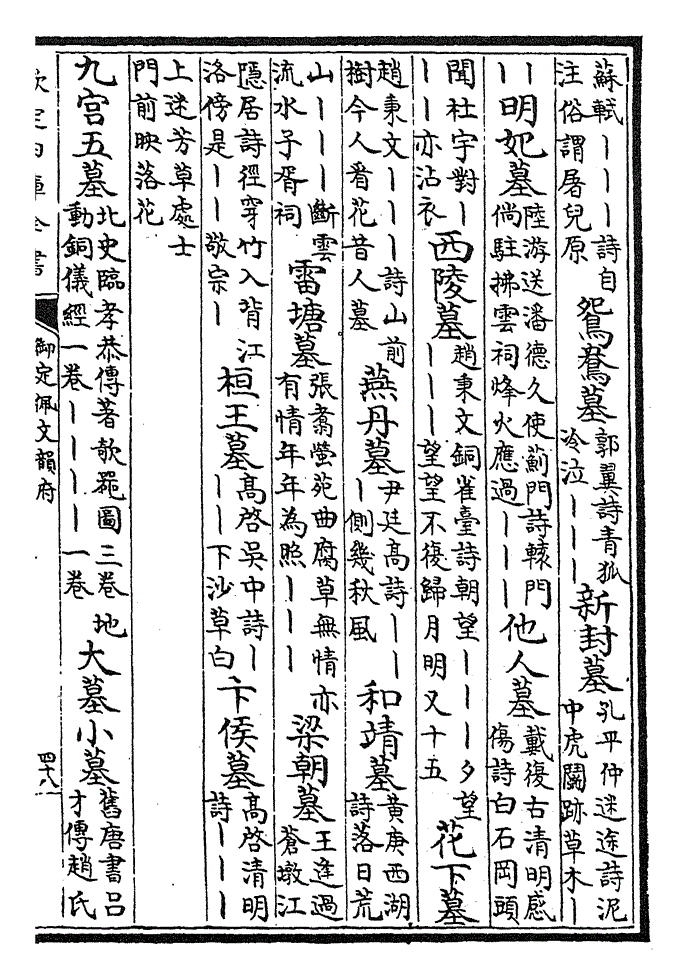 蘇軾丨丨丨詩自注俗謂屠兒原 鴛鴦墓 郭翼詩青狐冷泣丨丨丨 新封墓 孔平仲迷途詩泥中虎鬬跡草木丨
丨明妃墓 陸游送潘德久使薊門詩轅門倘駐拂雲祠烽火應過丨丨丨 他人墓 戴復古清明感傷詩白石岡頭
聞杜宇對丨丨丨亦沾衣 西陵墓 趙秉文銅雀臺詩朝望丨丨丨夕望丨丨丨望望不復歸月明又十五 花下墓
趙秉文丨丨丨詩山前樹今人看花昔人墓 燕丹墓 尹廷高詩丨丨丨側幾秋風 和靖墓 黃庚西湖詩落日荒
山丨丨丨斷雲流水子胥祠 雷塘墓 張翥螢苑曲腐草無情亦有情年年為照丨丨丨 梁朝墓 王逢過蒼墩江
隱居詩徑穿竹入背江洛傍是丨丨敬宗丨 桓王墓 高啓吳中詩丨丨丨下沙草白 卞侯墓 高啓清明詩丨丨丨
上迷芳草處士門前映落花
九宮五墓 北史臨孝恭傳著欹器圖三卷地動銅儀經一卷丨丨丨丨一卷 大墓小墓 舊唐書呂才傳趙氏
欽定四庫全書 御定佩文韻府 四十八